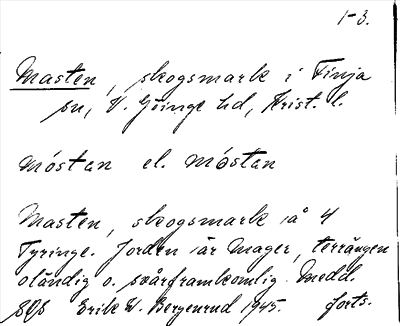 1-3.
Masten, skogsmark i Finja
sn, V. Göinge hd, Krist. l.
móstan el. móstan
Masten, skogsmark å 4
Tyringe. Jorden är mager, terrängen
oländig o. svårframkomlig. Medd.
SOS Erik W. Bergenrud 1945. forts.